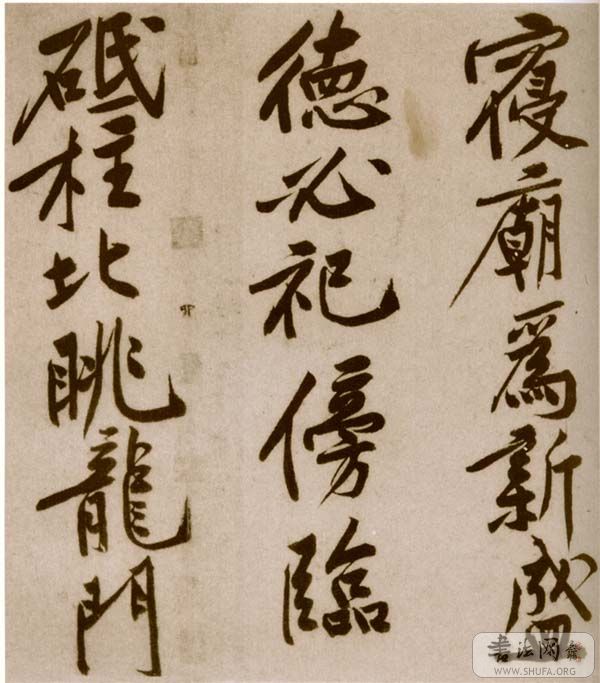 寢廟爲新盛
德必祀傍臨
砥柱北眺龍門
WWW.SHUFA.ORG